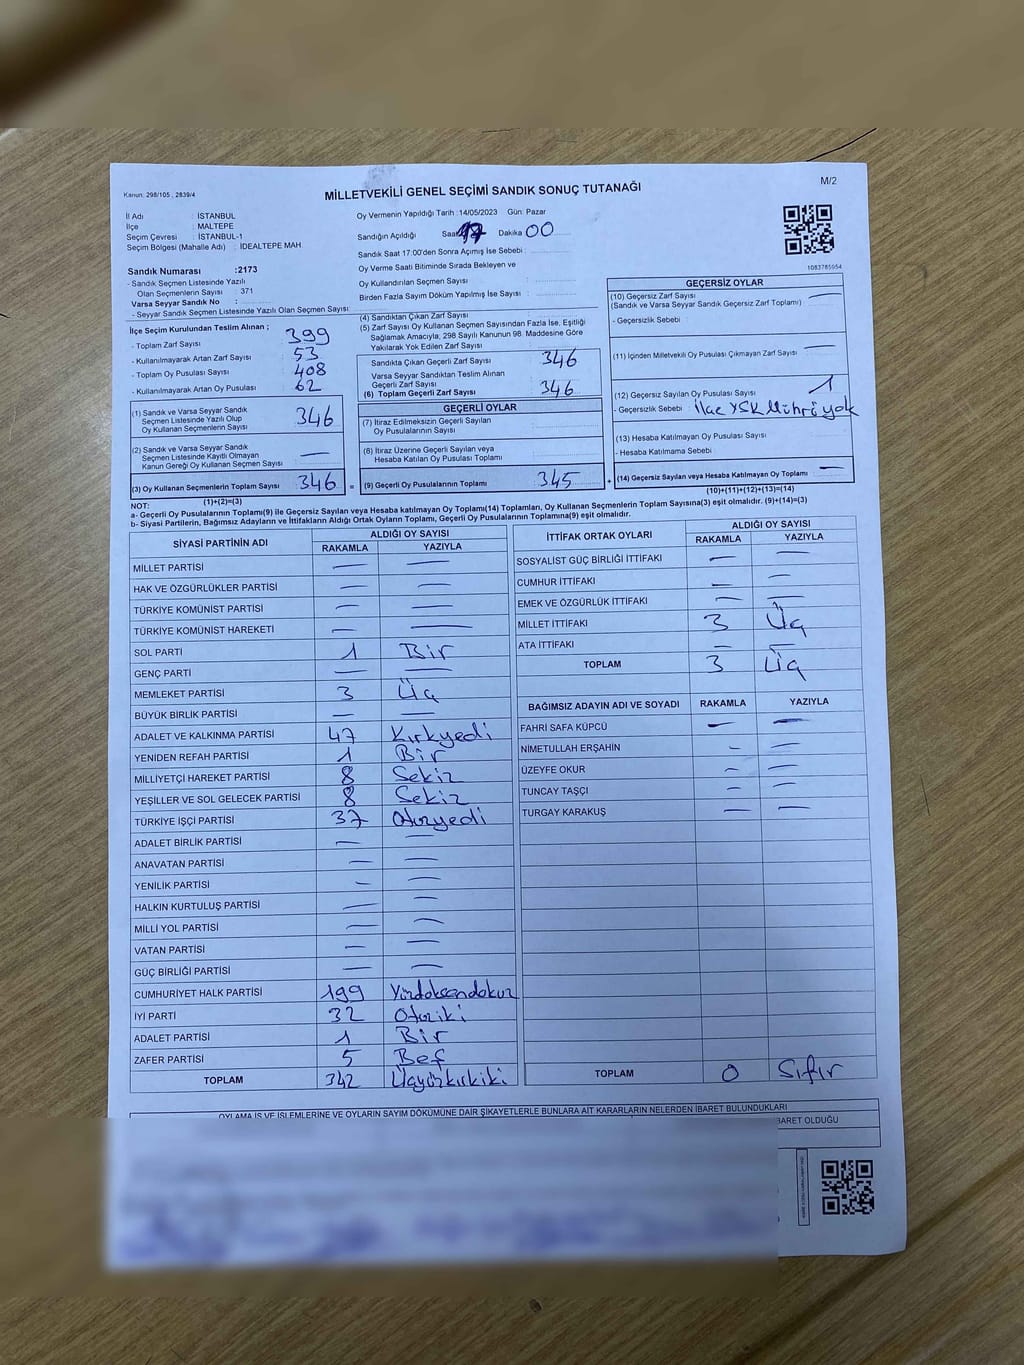 Kanun: 298/105 , 2839/4
MİLLETVEKİLİ GENEL SEÇİMİ SANDIK SONUÇ TUTANAĞI
M/2
İl Adı : İSTANBUL
İlçe : MALTEPE
Seçim Çevresi : İSTANBUL-1
Seçim Bölgesi (Mahalle Adı) : İDEALTEPE MAH.
Oy Vermenin Yapıldığı Tarih :14/05/2023 Gün: Pazar
Sandığın Açıldığı Saat 17 Dakika 00
Sandık Saat 17.00'den Sonra Açımış İse Sebebi :
Oy Verme Saati Bitiminde Sırada Bekleyen ve
Oy Kullandırılan Seçmen Sayısı :
Birden Fazla Sayım Döküm Yapılmış İse Sayısı :
Sandık Numarası :2173
- Sandık Seçmen Listesinde Yazılı
Olan Seçmenlerin Sayısı : 371
Varsa Seyyar Sandık No :
- Seyyar Sandık Seçmen Listesinde Yazılı Olan Seçmen Sayısı:
1083785954
İlçe Seçim Kurulundan Teslim Alınan ;
- Toplam Zarf Sayısı : 399
- Kullanılmayarak Artan Zarf Sayısı : 53
- Toplam Oy Pusulası Sayısı : 408
- Kullanılmayarak Artan Oy Pusulası : 62
(1) Sandık ve Varsa Seyyar Sandık
Seçmen Listesinde Yazılı Olup
Oy Kullanan Seçmenlerin Sayısı 346
(2) Sandık ve Varsa Seyyar Sandık
Seçmen Listesinde Kayıtlı Olmayan
Kanun Gereği Oy Kullanan Seçmen Sayısı —
(3) Oy Kullanan Seçmenlerin Toplam Sayısı 346 =
(1)+(2)=(3)
(4) Sandıktan Çıkan Zarf Sayısı :
(5) Zarf Sayısı Oy Kullanan Seçmen Sayısından Fazla İse, Eşitliği
Sağlamak Amacıyla, 298 Sayılı Kanunun 98. Maddesine Göre
Yakılarak Yok Edilen Zarf Sayısı :
Sandıkta Çıkan Geçerli Zarf Sayısı 346
Varsa Seyyar Sandıktan Teslim Alınan
Geçerli Zarf Sayısı
(6) Toplam Geçerli Zarf Sayısı 346
GEÇERLİ OYLAR
(7) İtiraz Edilmeksizin Geçerli Sayılan
Oy Pusulalarının Sayısı
(8) İtiraz Üzerine Geçerli Sayılan veya
Hesaba Katılan Oy Pusulası Toplamı
(9) Geçerli Oy Pusulalarının Toplamı 345 +
GEÇERSİZ OYLAR
(10) Geçersiz Zarf Sayısı —
(Sandık ve Varsa Seyyar Sandık Geçersiz Zarf Toplamı)
- Geçersizlik Sebebi :
(11) İçinden Milletvekili Oy Pusulası Çıkmayan Zarf Sayısı : —
(12) Geçersiz Sayılan Oy Pusulası Sayısı : 1
- Geçersizlik Sebebi : İlçe YSK Mührü yok
(13) Hesaba Katılmayan Oy Pusulası Sayısı :
- Hesaba Katılmama Sebebi :
(14) Geçersiz Sayılan veya Hesaba Katılmayan Oy Toplamı —
(10)+(11)+(12)+(13)=(14)
NOT:
a- Geçerli Oy Pusulalarının Toplamı(9) ile Geçersiz Sayılan veya Hesaba katılmayan Oy Toplamı(14) Toplamları, Oy Kullanan Seçmenlerin Toplam Sayısına(3) eşit olmalıdır. (9)+(14)=(3)
b- Siyasi Partilerin, Bağımsız Adayların ve İttifakların Aldığı Ortak Oyların Toplamı, Geçerli Oy Pusulalarının Toplamına(9) eşit olmalıdır.
SİYASİ PARTİNİN ADI ALDIĞI OY SAYISI
RAKAMLA YAZIYLA
MİLLET PARTİSİ — —
HAK VE ÖZGÜRLÜKLER PARTİSİ — —
TÜRKİYE KOMÜNİST PARTİSİ — —
TÜRKİYE KOMÜNİST HAREKETİ — —
SOL PARTİ 1 Bir
GENÇ PARTİ — —
MEMLEKET PARTİSİ 3 Üç
BÜYÜK BİRLİK PARTİSİ — —
ADALET VE KALKINMA PARTİSİ 47 Kırkyedi
YENİDEN REFAH PARTİSİ 1 Bir
MİLLİYETÇİ HAREKET PARTİSİ 8 Sekiz
YEŞİLLER VE SOL GELECEK PARTİSİ 8 Sekiz
TÜRKİYE İŞÇİ PARTİSİ 37 Otuzyedi
ADALET BİRLİK PARTİSİ — —
ANAVATAN PARTİSİ — —
YENİLİK PARTİSİ — —
HALKIN KURTULUŞ PARTİSİ — —
MİLLİ YOL PARTİSİ — —
VATAN PARTİSİ — —
GÜÇ BİRLİĞİ PARTİSİ — —
CUMHURİYET HALK PARTİSİ 199 Yüzdoksandokuz
İYİ PARTİ 32 Otuziki
ADALET PARTİSİ 1 Bir
ZAFER PARTİSİ 5 Beş
TOPLAM 342 Üçyüzkırkiki
İTTİFAK ORTAK OYLARI ALDIĞI OY SAYISI
RAKAMLA YAZIYLA
SOSYALİST GÜÇ BİRLİĞİ İTTİFAKI — —
CUMHUR İTTİFAKI — —
EMEK VE ÖZGÜRLÜK İTTİFAKI — —
MİLLET İTTİFAKI 3 Üç
ATA İTTİFAKI — —
TOPLAM 3 Üç
BAĞIMSIZ ADAYIN ADI VE SOYADI RAKAMLA YAZIYLA
FAHRİ SAFA KÜPCÜ — —
NİMETULLAH ERŞAHİN — —
ÜZEYFE OKUR — —
TUNCAY TAŞÇI — —
TURGAY KARAKUŞ — —
TOPLAM 0 Sıfır
OYLAMA İŞ VE İŞLEMLERİNE VE OYLARIN SAYIM DÖKÜMÜNE DAİR ŞİKAYETLERLE BUNLARA AİT KARARLARIN NELERDEN İBARET BULUNDUKLARI
BARET OLDUĞU